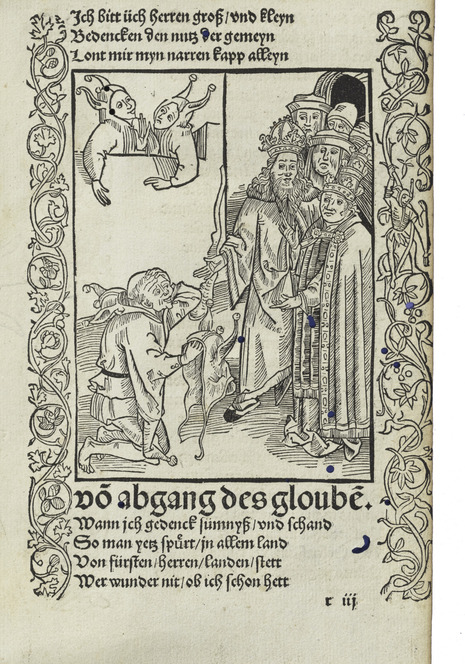 Jch bitt üch herren groß/vnd kleyn
Bedencken den nutz der gemeyn
Lont mir myn narren kapp alleyn
võ abgang des gloubẽ.
Wann jch gedenck sumnyß/vnd schand
So man yetz spu᷑rt/jn allem land
Von fürsten/herren/landen/stett
Wer wunder nit/ob ich schon hett
r iij